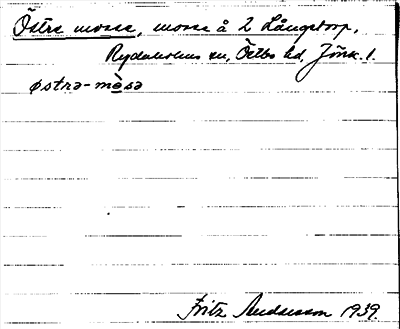 Östra mosse, mosse å 2 Långstorp,
Rydaholms sn, Östbo hd, Jönk. l.
østrə-mòsə
Fritz Andersson 1939.